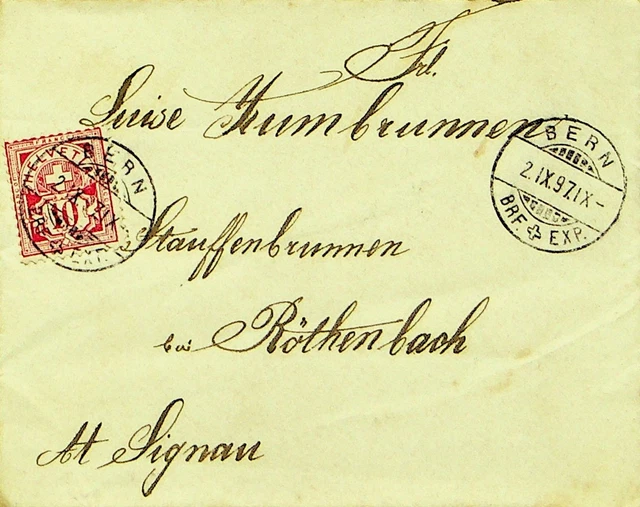 Frl.
Luise Kumbrunnen
Stauffenbrunnen
bei Röthenbach
At Signau
HELVETIA
10
BERN
BRF. EXP.
BERN
2.IX.97.IX-
BRF. EXP.